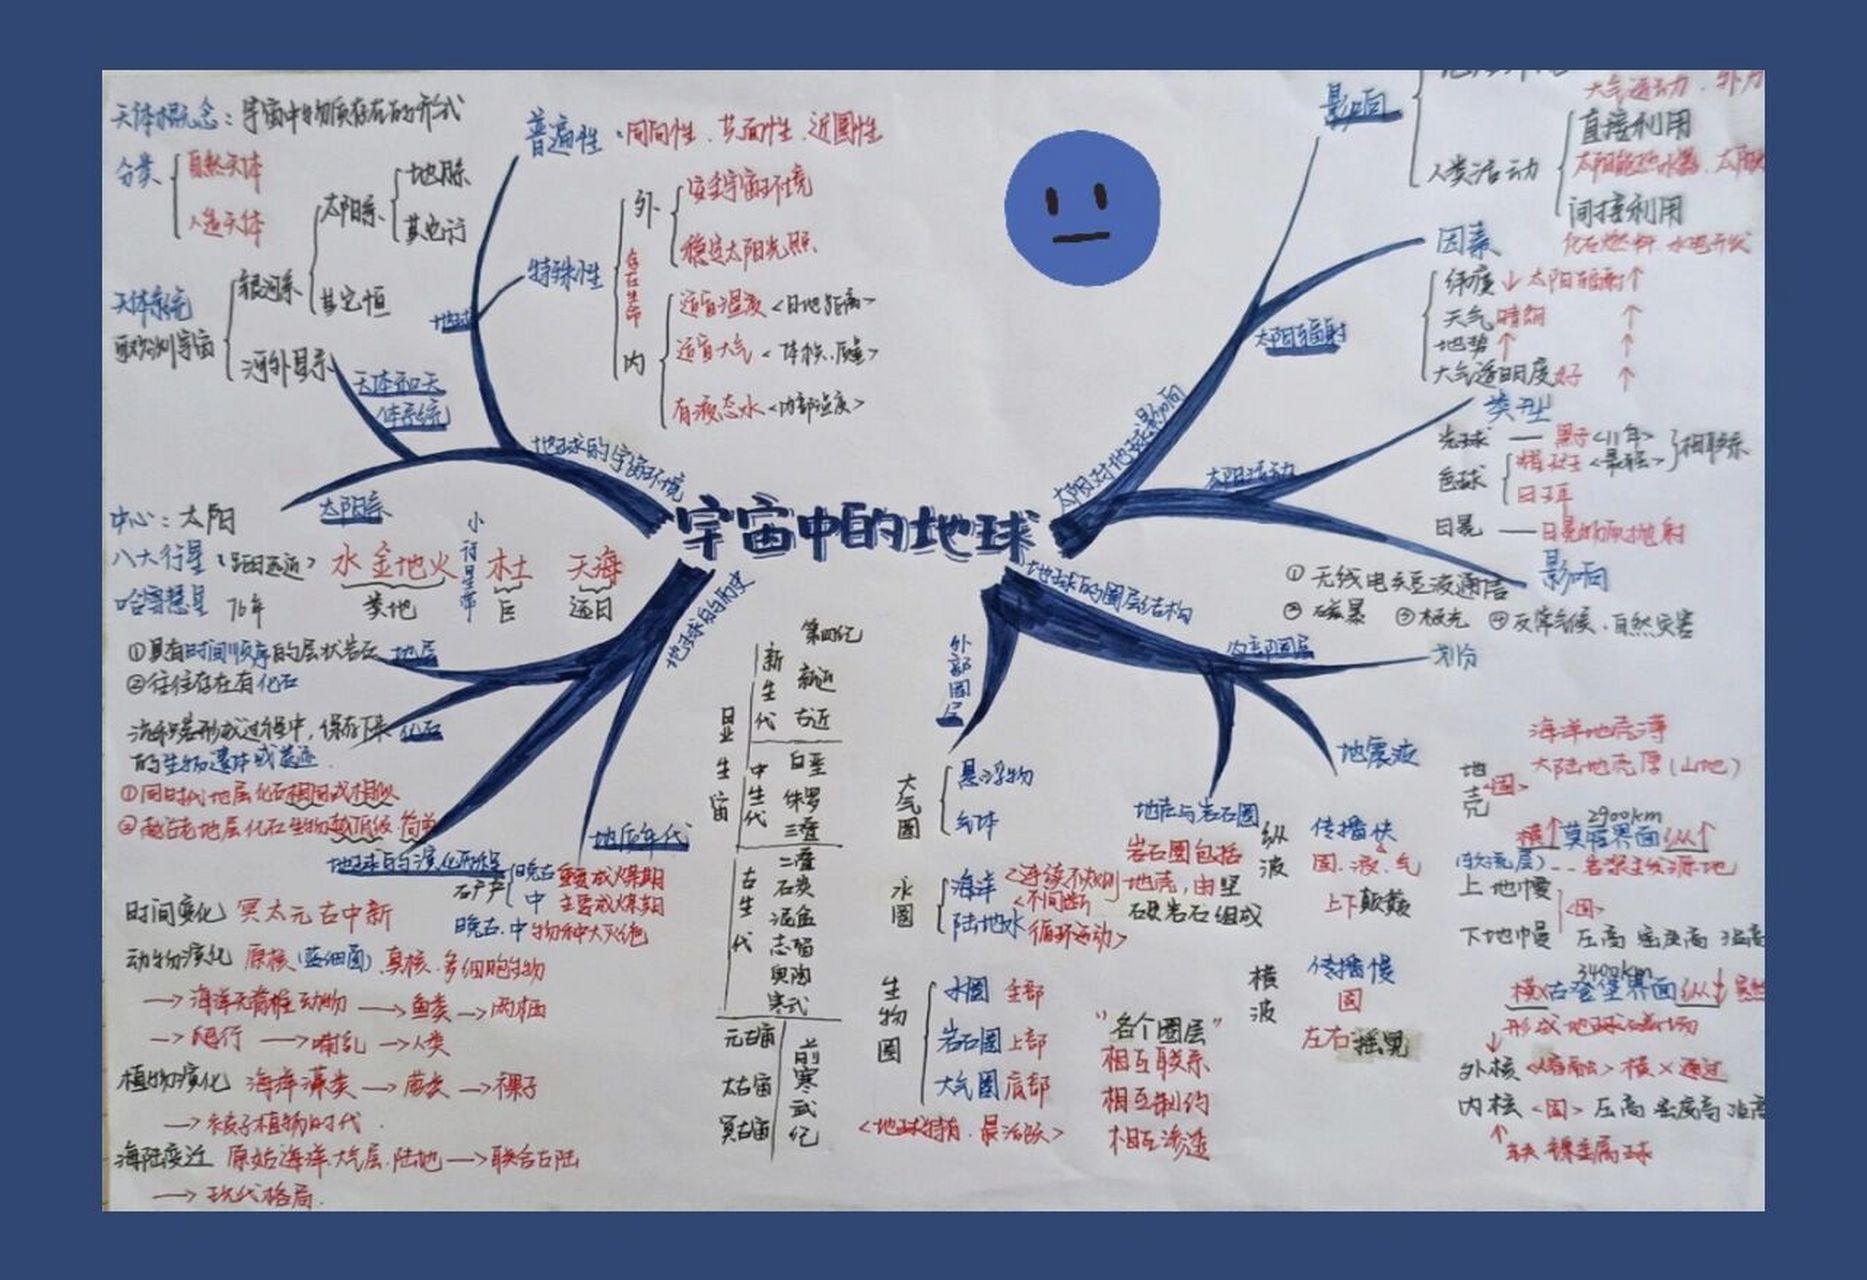 宇宙中的地球
地球的宇宙环境
天体和天
体系统
天体概念：宇宙中物质存在的形式
分类
自然天体
人造天体
天体系统
可观测宇宙
银河系
太阳系
地月系
其它行
其它恒
河外星系
太阳系
中心：太阳
八大行星（距日远近）水金地火 小行星带 木土 天海
类地 巨 远日
哈雷彗星 76年
地球
普遍性：同向性、共面性、近圆性
特殊性
存在生命
外
安全宇宙环境
稳定太阳光照
内
适宜温度<日地距离>
适宜大气<体积、质量>
有液态水<内部温度>
太阳对地球影响
太阳辐射
影响
大气运动、外力
人类活动
直接利用
太阳能热水器、太阳
间接利用
化石燃料 水电开发
因素
纬度↓太阳辐射↑
天气晴朗 ↑
地势↑ ↑
大气透明度好 ↑
太阳活动
类型
光球 — 黑子<11年>
色球
耀斑<最强>
相联系
日珥
日冕 — 日冕物质抛射
影响
① 无线电短波通信
② 磁暴 ③极光 ④反常气候、自然灾害
地球的历史
地层
①具有时间顺序的层状岩石
②往往存在有化石
化石
沉积岩形成过程中，保存下来
的生物遗体或遗迹
①同时代地层化石相同或相似
②越古老地层化石生物越低级、简单
地球的演化历程
石矿产
晚古 重要成煤期
中 主要成煤期
晚古、中 物种大灭绝
时间变化 冥太元古中新
动物演化 原核（蓝细菌）、真核、多细胞生物
→海洋无脊椎动物→鱼类→两栖
→爬行→哺乳→人类
植物演化 海洋藻类→蕨类→裸子
→被子植物时代
海陆变迁 原始海洋、大气层、陆地→联合古陆
→现代格局
地质年代
新生代
第四纪
新近
古近
中生代
白垩
侏罗
三叠
古生代
二叠
石炭
泥盆
志留
奥陶
寒武
元古宙
太古宙
冥古宙
前寒武纪
地球的圈层结构
外部圈层
大气圈
悬浮物
气体
水圈
海洋
陆地水
<连续不规则
<不间断
循环运动>
生物圈
水圈 全部
岩石圈上部
大气圈底部
<地球特有、最活跃>
“各个圈层”
相互联系
相互制约
相互渗透
内部圈层
地壳与岩石圈
岩石圈包括
地壳，由坚
硬岩石组成
地震波
纵波
传播快
固、液、气
上下颠簸
横波
传播慢
固
左右摇晃
划分
地壳
<固>
海洋地壳薄
大陆地壳厚（山地）
2900km
横↑莫霍界面纵↑
（软流层）… 岩浆主发源地
上地幔
<固>
下地幔 压高 密度高 温高
3400km
横×古登堡界面纵↓
形成地球磁场
外核<熔融>横×通过
内核<固>压高 密度高 温高
铁镍金属球